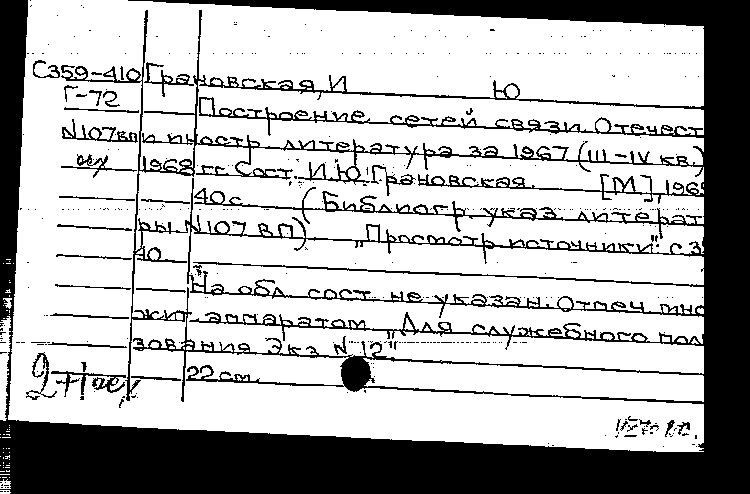 С359-410 Грановская, И Ю
Г-72 Построение сетей связи. Отечест
N107вп и иностр. литература за 1967 (III-IV кв.)
1968 гг. Сост. И.Ю. Грановская. [М.], 196
40с. (Библиогр. указ. литерат
ры N107 ВП). „Просмотр источники": с.3
40
На обл. сост. не указан. Отпеч. мно
жит. аппаратом „Для служебного пол
зования Экз N 12"
22 см.
2+1